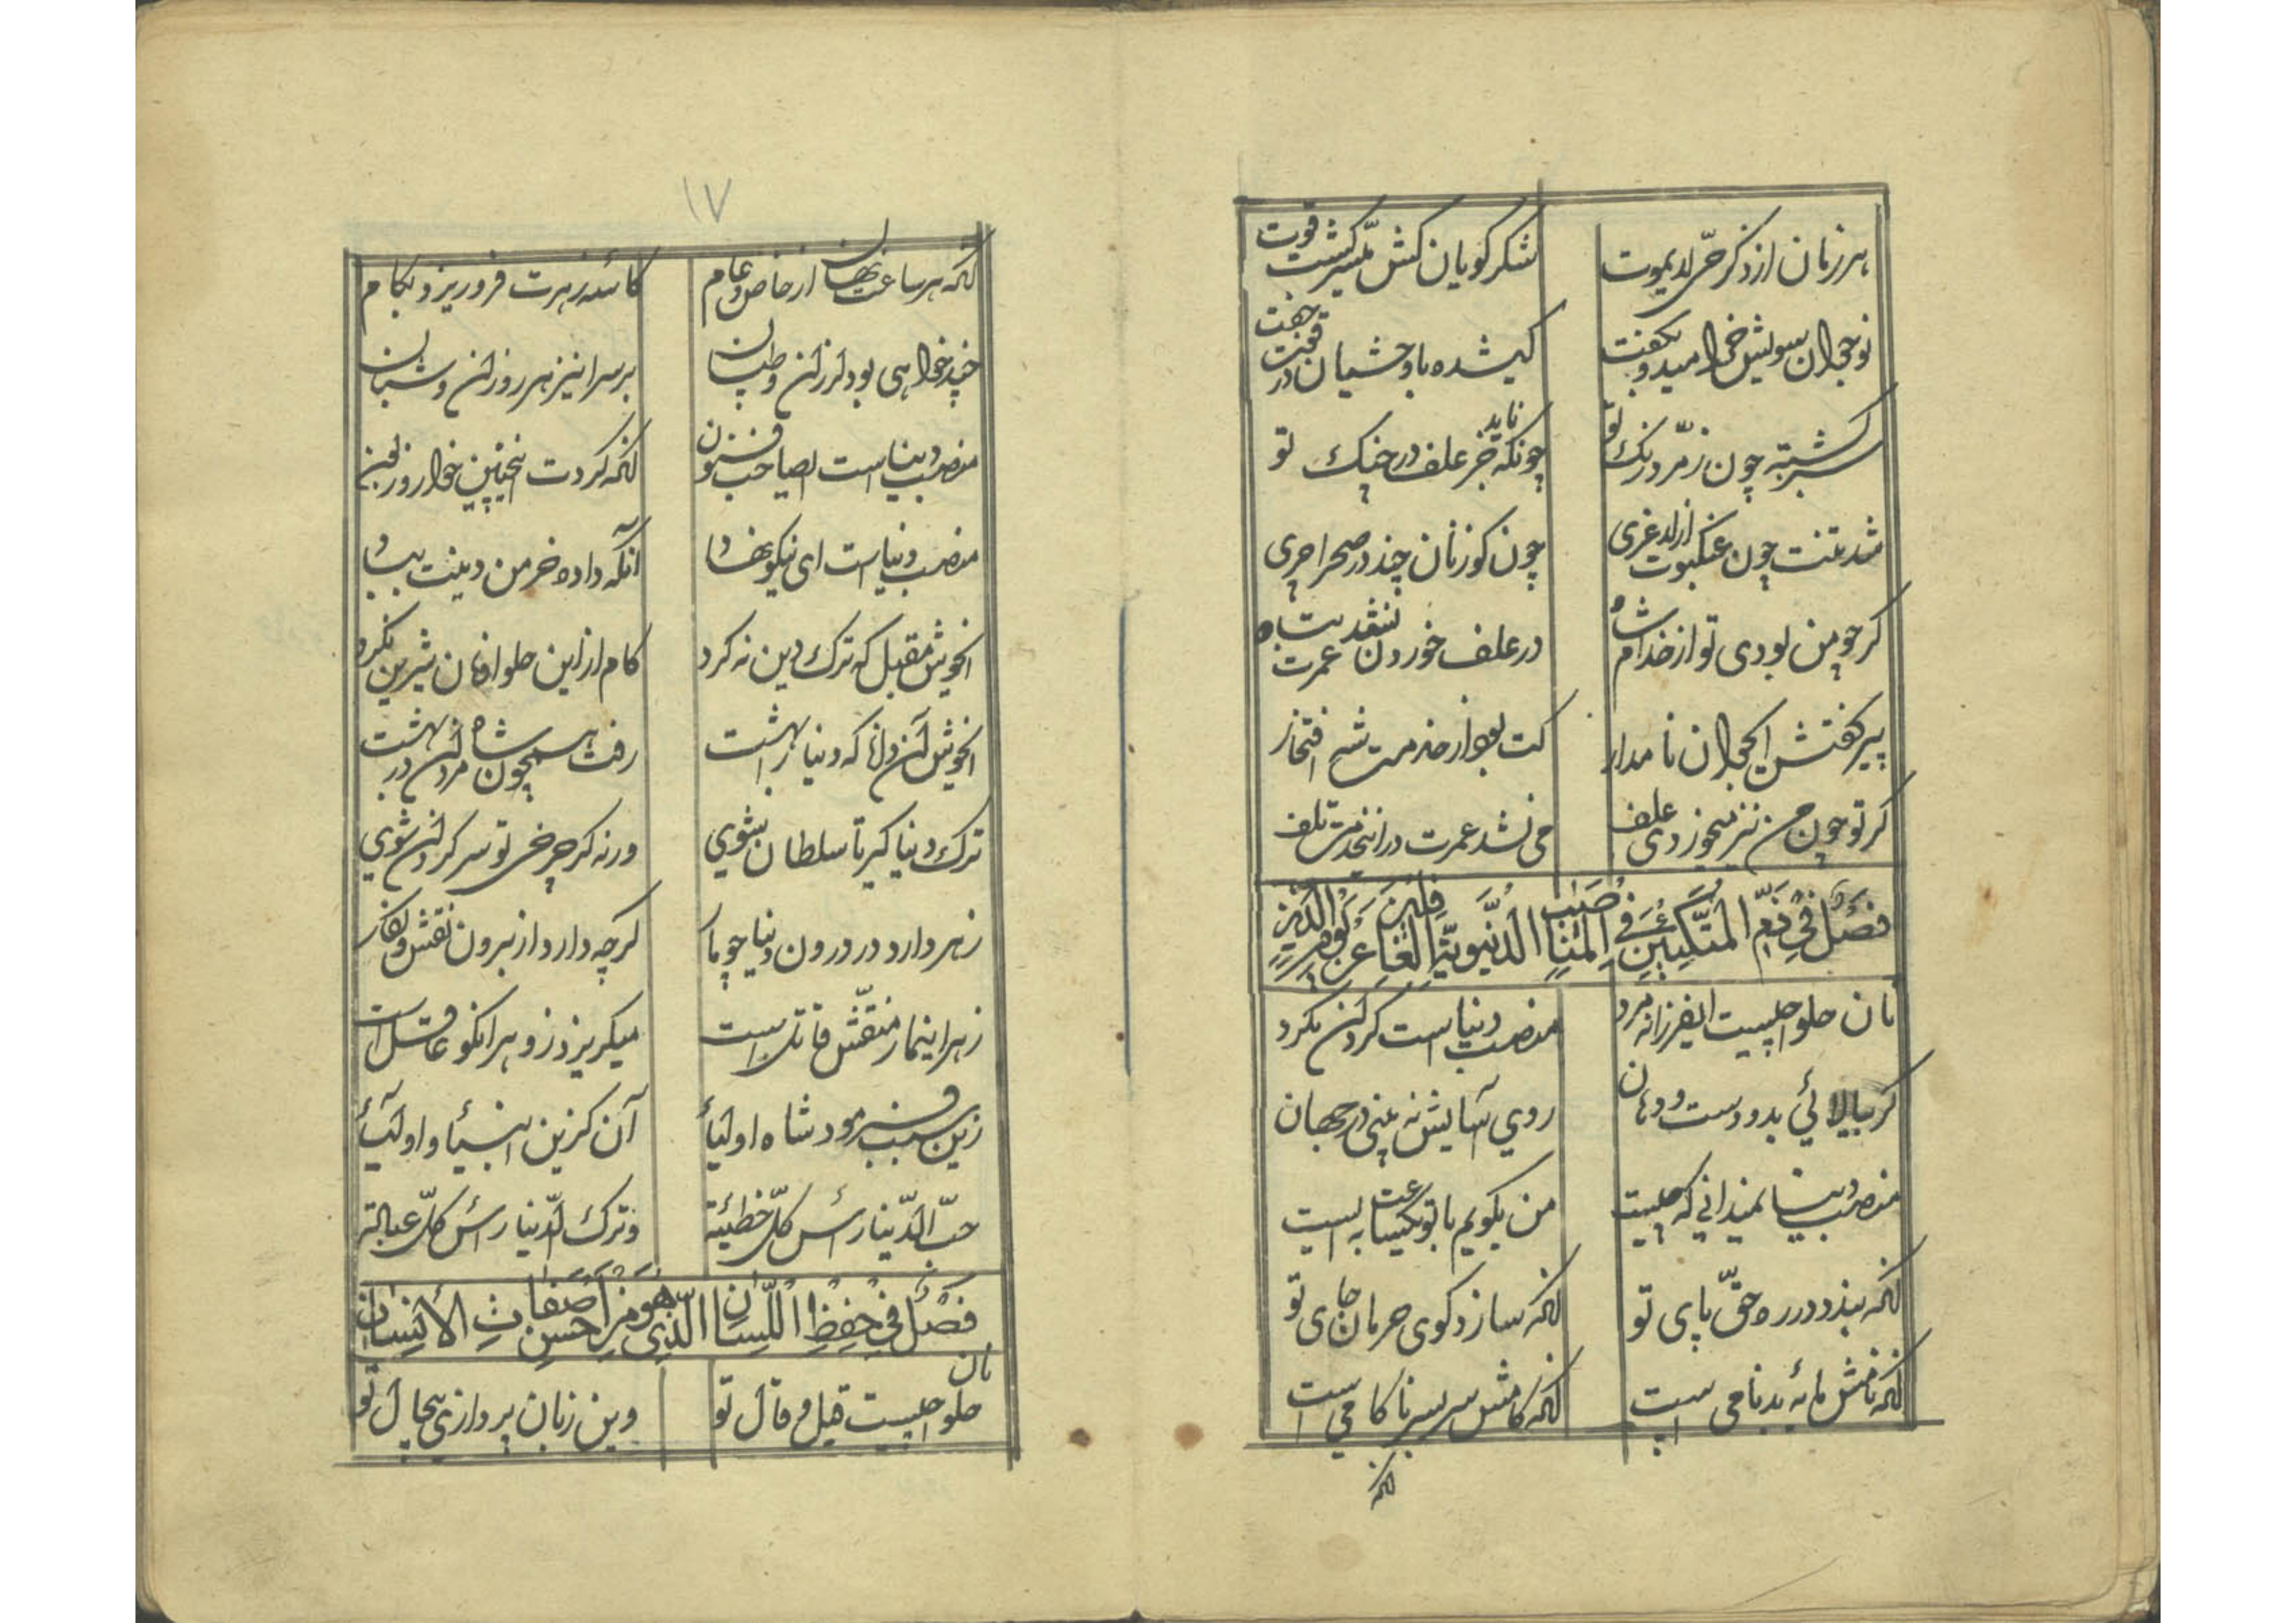 هر زمان از ذکر حی لایموت شکر کویان کش میسر کشت قوت
نوجوان سویش خرامید و بکفت کی شده با وحشیان در قوت جفت
سبز کشته چون زمرد رنک تو چونکه ناید جز علف در چنک تو
شد تنت چون عنکبوت از لاغری چون کوزنان چند در صحرا چری
کر چو من بودی تو از خدام شاه در علف خوردن نشد عمرت تباه
پیر کفتش ایجوان نامدار کت بود از خدمت شه افتخار
کر تو چون من نیز میخوردی علف می نشد عمرت در این خدمت تلف
فصل فی ذم المتکبین فی المناصب الدنیویة
نان حلوا چیست ایفرزانه مرد منصب دنیاست کرد آن مکرد
کر بیالائی بدو دست و دهان روی آسایش نه بینی در جهان
منصب دنیا نمیدانی که چیست من بکویم با تو یکساعت بایست
آنکه بندد در ره حق پای تو آنکه سازد کوی حرمان جای تو
آنکه نامش مایه بدنامی است آنکه کامش سربسر ناکامی است
آنکه
۱۷
آنکه هر ساعت نهان از خاص و عام کاسه زهرت فرو ریزد بکام
چند خواهی بود لرزان و طپان بر سر این زهر روزان و شبان
منصب دنیاست ایصاحب فنون آنکه کردت اینچنین خوار و زبون
منصب دنیاست ای نیکو نهاد آنکه داده خرمن دینت بباد
ایخوش مقبل که ترک دین نه کرد کام از این حلوا و نان شیرین نکرد
ایخوش آن دانا که دنیا را بهشت رفت همچون شاه مردان در بهشت
ترک دنیا کیر تا سلطان شوی ورنه کر چرخی تو سرکردان شوی
زهر دارد در درون دنیا چو مار کرچه دارد از برون نقش و نکار
زهر این مار منقش قاتل است میکریزد زو هر انکو عاقل است
زین سبب فرمود شاه اولیأ آن کزین انبیأ و اولیأ
حبّ الدّنیا رأس کلّ خطیئة وترک الدّنیا رأس کلّ عبادة
فصل فی حفظ اللسان الذی هو من احسن صفات الأنسان
نان حلوا چیست قیل و قال تو وین زبان پردازی بیحال تو